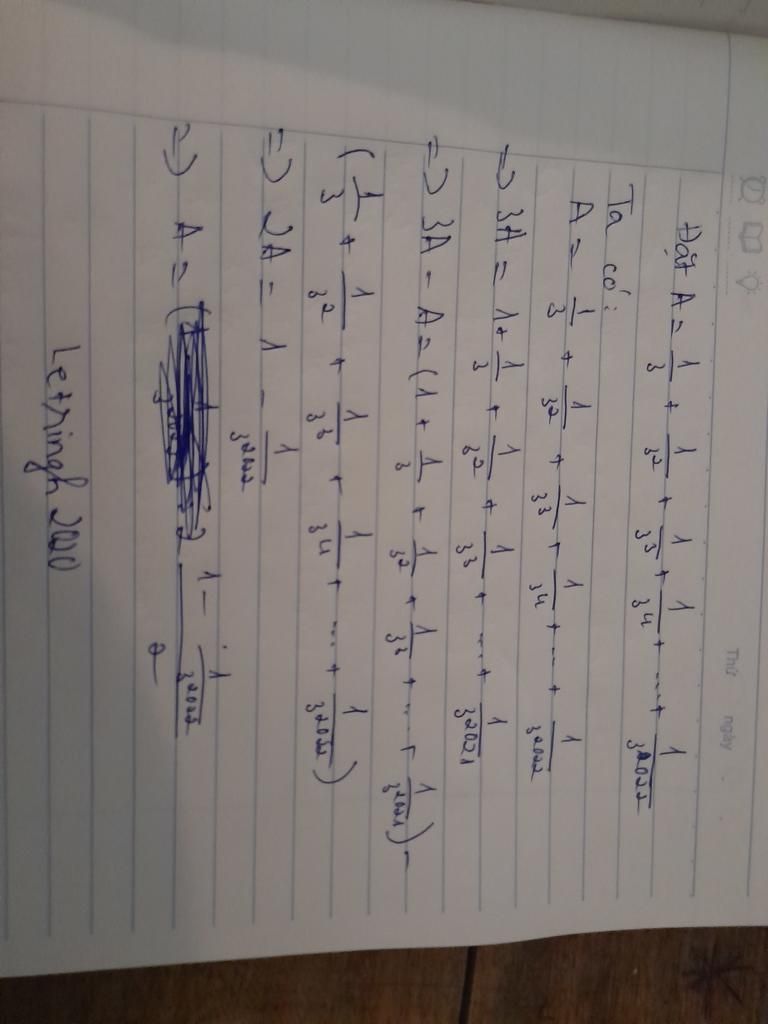 Thứ ngày
Đặt A = 1/3 + 1/3² + 1/3³ + 1/3⁴ + ... + 1/3²⁰²²
Ta có:
A = 1/3 + 1/3² + 1/3³ + 1/3⁴ + ... + 1/3²⁰²²
=> 3A = 1 + 1/3 + 1/3² + 1/3³ + ... + 1/3²⁰²¹
=> 3A - A = (1 + 1/3 + 1/3² + 1/3³ + ... + 1/3²⁰²¹) -
(1/3 + 1/3² + 1/3³ + 1/3⁴ + ... + 1/3²⁰²²)
=> 2A = 1 - 1/3²⁰²²
=> A = (1 - 1/3²⁰²²)/2
Letringh2020